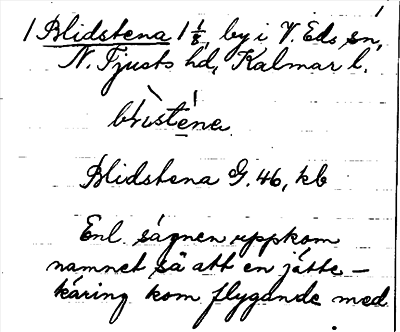 1
1 Blidstena 1 1/8, by i V. Eds sn,
N. Tjusts hd, Kalmar l.
Blidstena G. 46, kb
Enl. sägnen uppkom
namnet så att en jätte-
käring kom flygande med